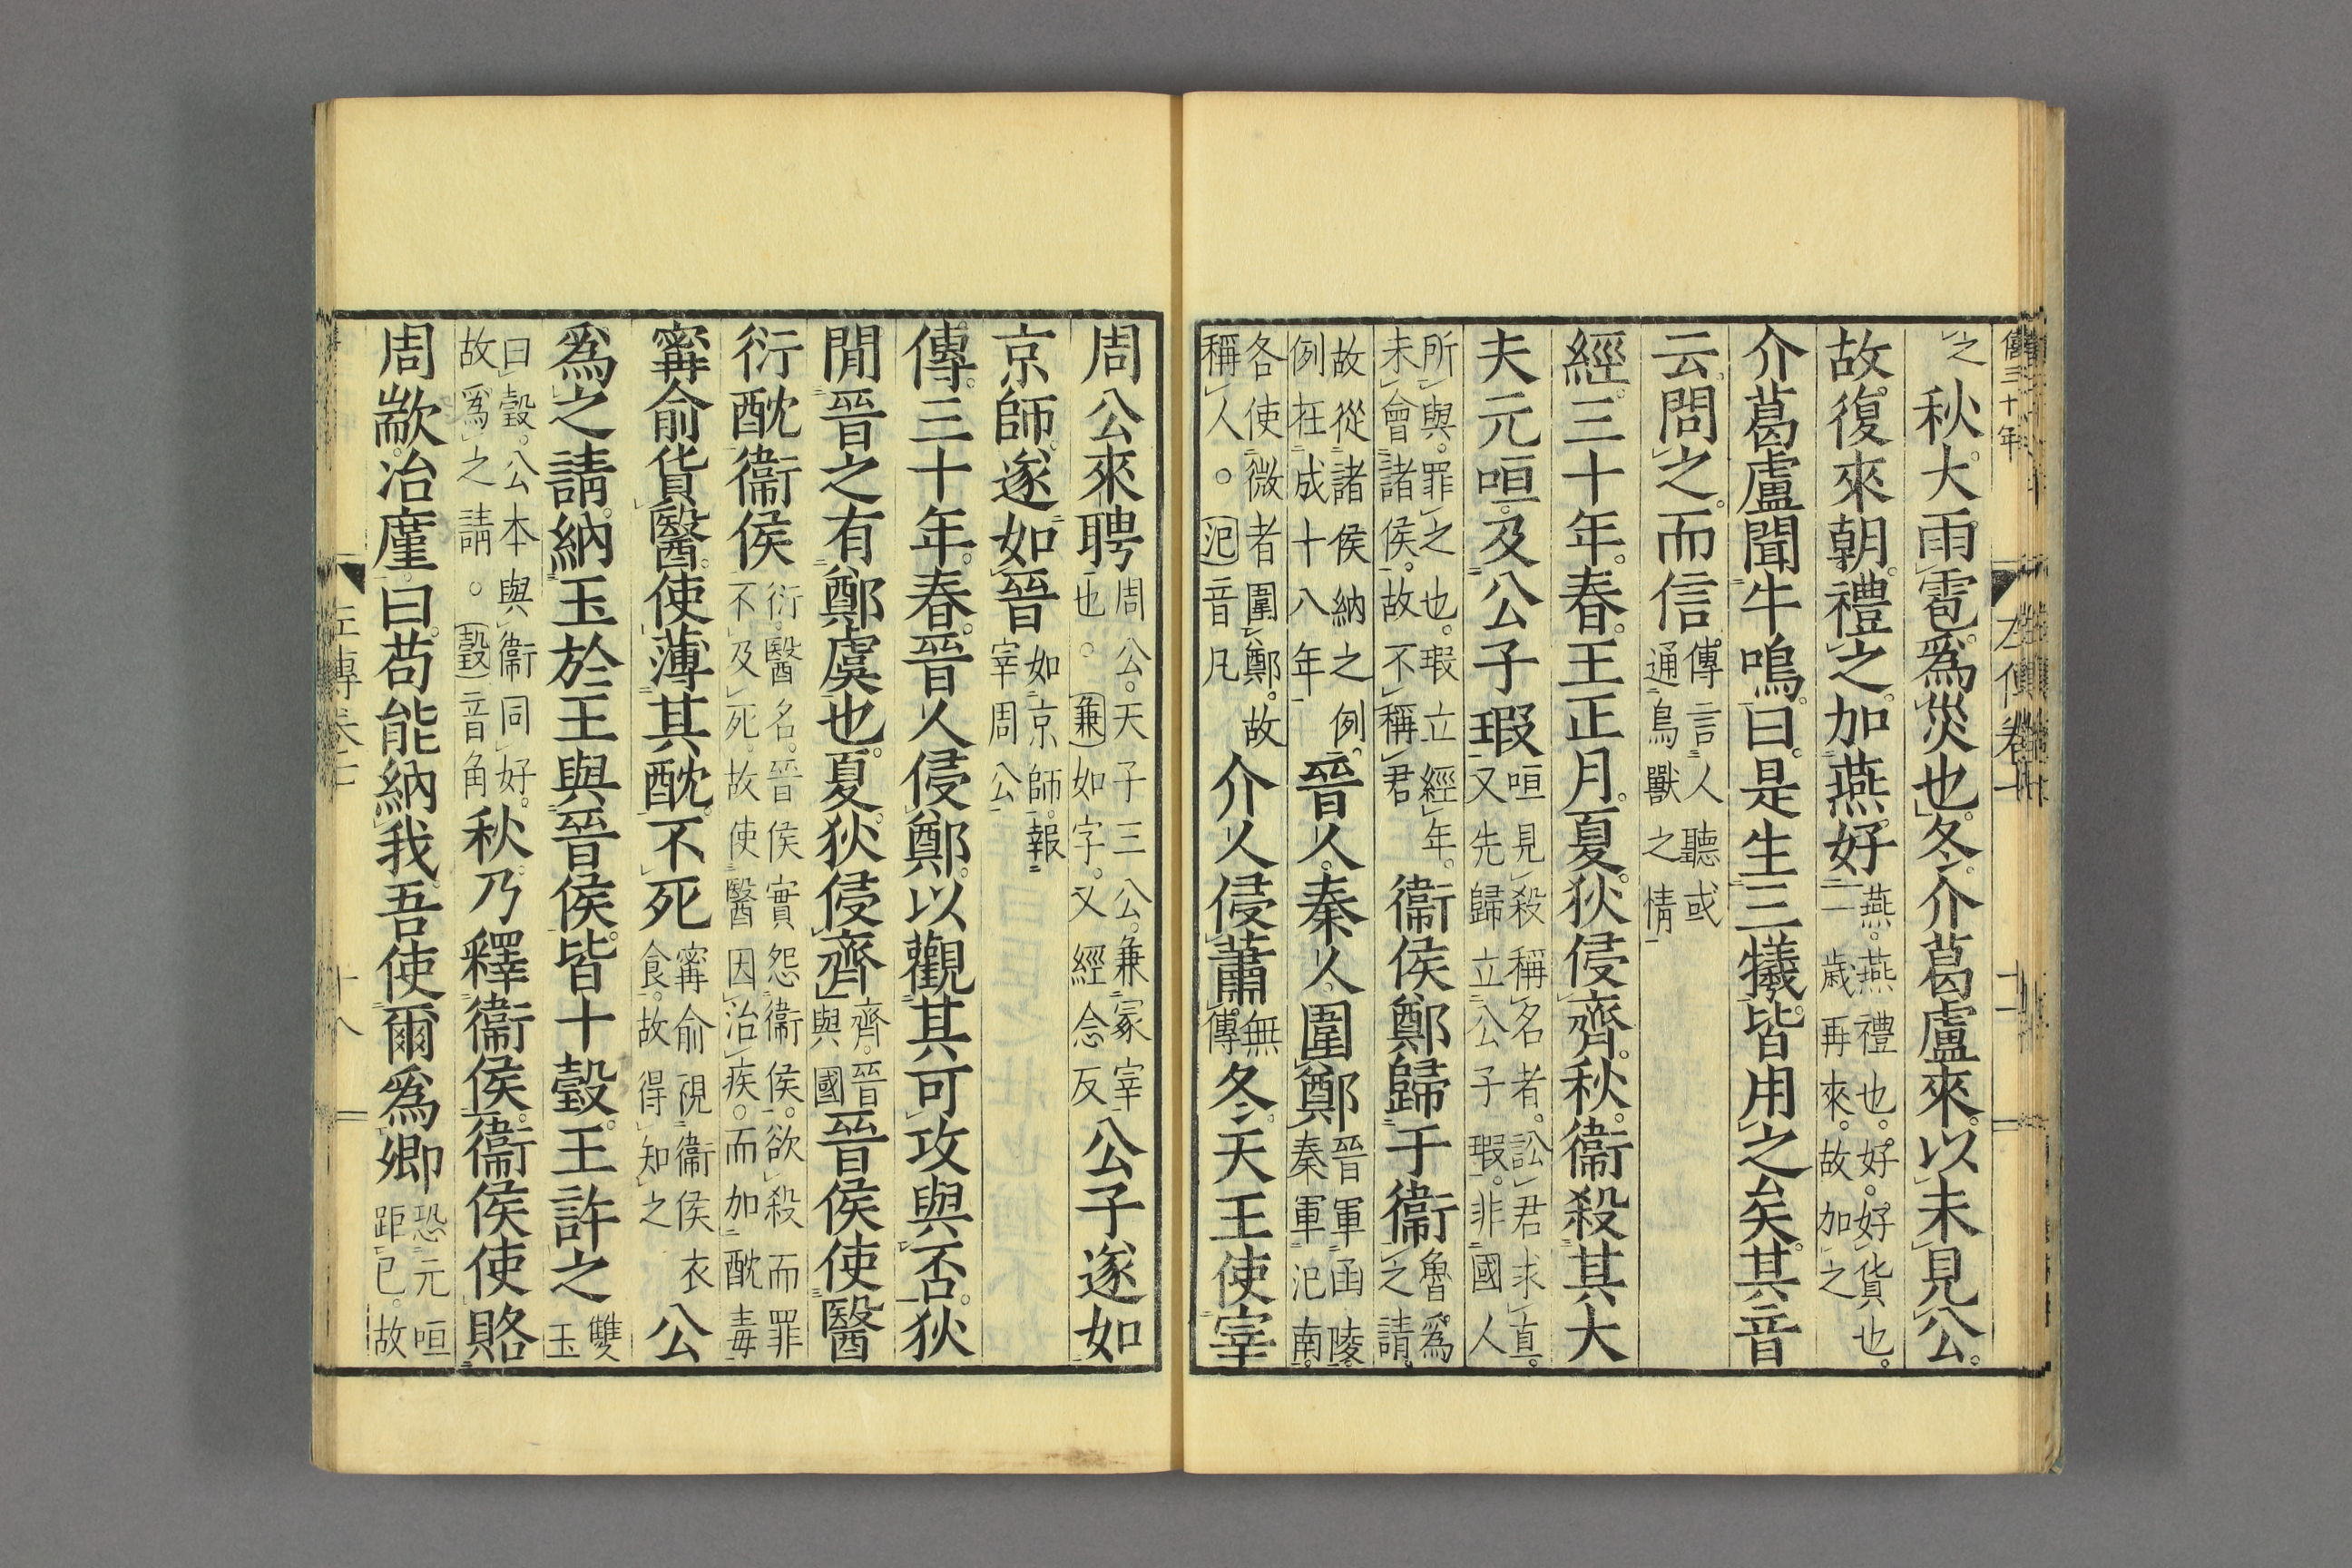 之秋。大雨雹。爲災也。冬。介葛盧來。以未見公。
故復來朝。禮之。加燕好燕。燕禮也。好。好貨也。一歲再來。故加之
介葛盧聞牛鳴。曰。是生三犧。皆用之矣。其音
云。問之。而信傳言人聽或通鳥獸之情
經。三十年。春。王正月。夏。狄侵齊。秋。衞殺其大
夫元咺。及公子瑕咺見殺稱名者。訟君求直。又先歸立公子瑕。非國人
所與。罪之也。瑕立經年。未會諸侯。故不稱君衞侯鄭歸于衞魯爲之請。
故從諸侯納之例。例在成十八年晉人。秦人。圍鄭晉軍函陵。秦軍氾南。
各使微者圍鄭。故稱人。○氾音凡介人侵蕭無傳。冬。天王使宰
周公來聘周公。天子三公。兼冢宰也。○兼如字。又經念反公子遂如
京師。遂如晉如京師。報宰周公
傳。三十年。春。晉人侵鄭。以觀其可攻與否。狄
閒晉之有鄭虞也。夏。狄侵齊齊。晉與國晉侯使醫
衍酖衞侯衍。醫名。晉侯實怨衞侯。欲殺而罪不及死。故使醫因治疾。而加酖毒
甯俞貨醫。使薄其酖。不死甯俞視衞侯衣食。故得知之公
爲之請。納玉於王與晉侯。皆十瑴。王許之雙玉
曰瑴。公本與衞同好。故爲之請。○瑴音角秋。乃釋衞侯。衞侯使賂
周歂。冶廑。曰。苟能納我。吾使爾爲卿恐元咺距己。故
僖三十年
左傳卷十
十八